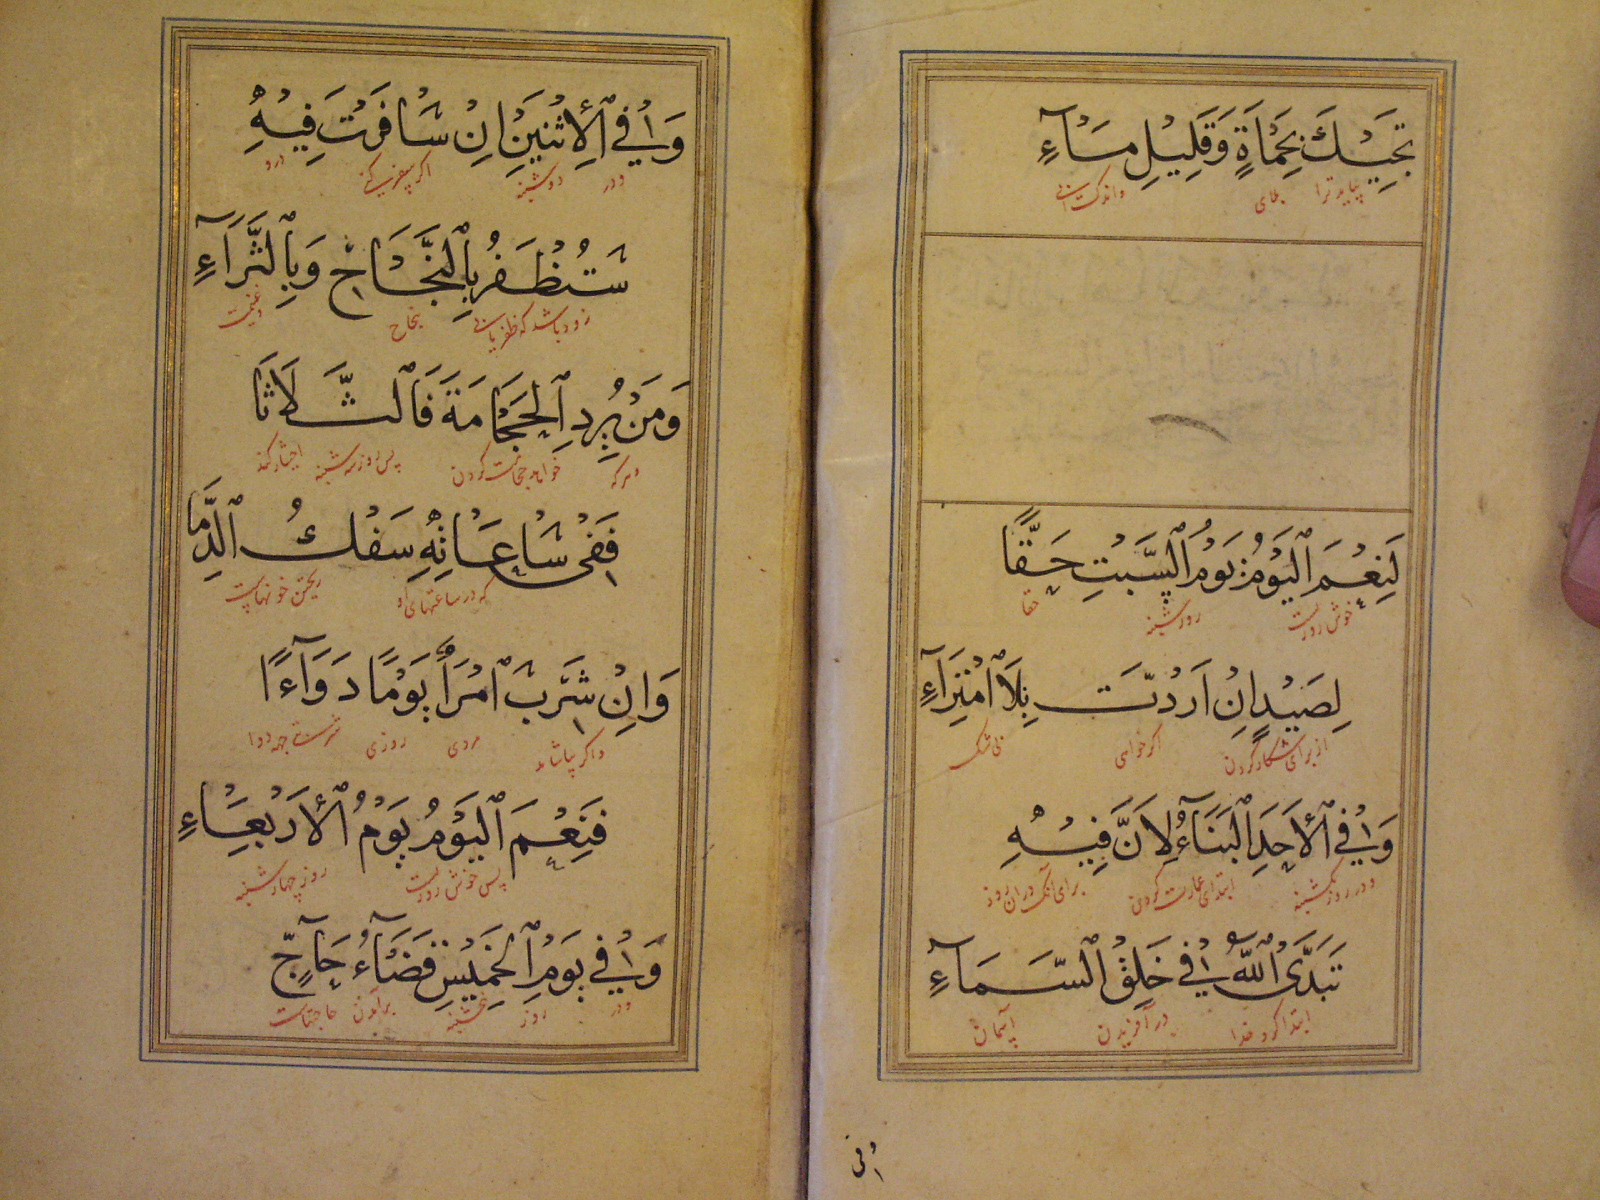 تَجِيْكَ بِحَمْأَةٍ وَقَلِيْلِ مَآءِ
بیاید ترا بلای واندکت آبی
لَنِعْمَ الْيَوْمُ يَوْمُ السَّبْتِ حَقًّا
خوش روزیست روز شنبه حقا
لِصَيْدٍ اِنْ اَرَدْتَ بِلَا امْتِرَآءِ
از برای شکار کردن اکر خواهی بی شک
وَفِي الْاَحَدِ الْبَنَآءُ لِاَنَّ فِيْهِ
ودر روز یکشنبه ابتدای عمارت کردن برای آنک دران روز
تَبَدَّى اللهُ فِي خَلْقِ السَّمَآءِ
ابتدا کرد خدا در آفریدن آسمان
وفی
وَفِي الْاِثْنَيْنِ اِنْ سَافَرْتَ فِيْهِ
ودر دوشنبه اکر سفر کنی درو
سَتُظْفَرُ بِالنَّجَاحِ وَبِالثَّرَآءِ
زود باشد که ظفر یابی بنجاح وغنیمت
وَمَنْ يُرِدِ الْحَجَامَةَ فَالثَّلَاثَا
وهرکه خواهد حجامت کردن پس روز سه شنبه اختیار کند
فَفِى سَاعَاتِهِ سَفْكُ الدِّمَا
که در ساعتهای او ریختن خونهاست
وَاِنْ شَرِبَ امْرَأٌ يَوْمًا دَوَآءًا
واکر بیاشامد مردی روزی شربت جهة دوا
فَنِعْمَ الْيَوْمُ يَوْمُ الْاَرْبَعَاءِ
پس خوش روزیست روز چهارشنبه
وَفِي يَوْمِ الْخَمِيْسِ قَضَآءُ حَآجٍ
ودر روز پنجشنبه برآمدن حاجتهاست